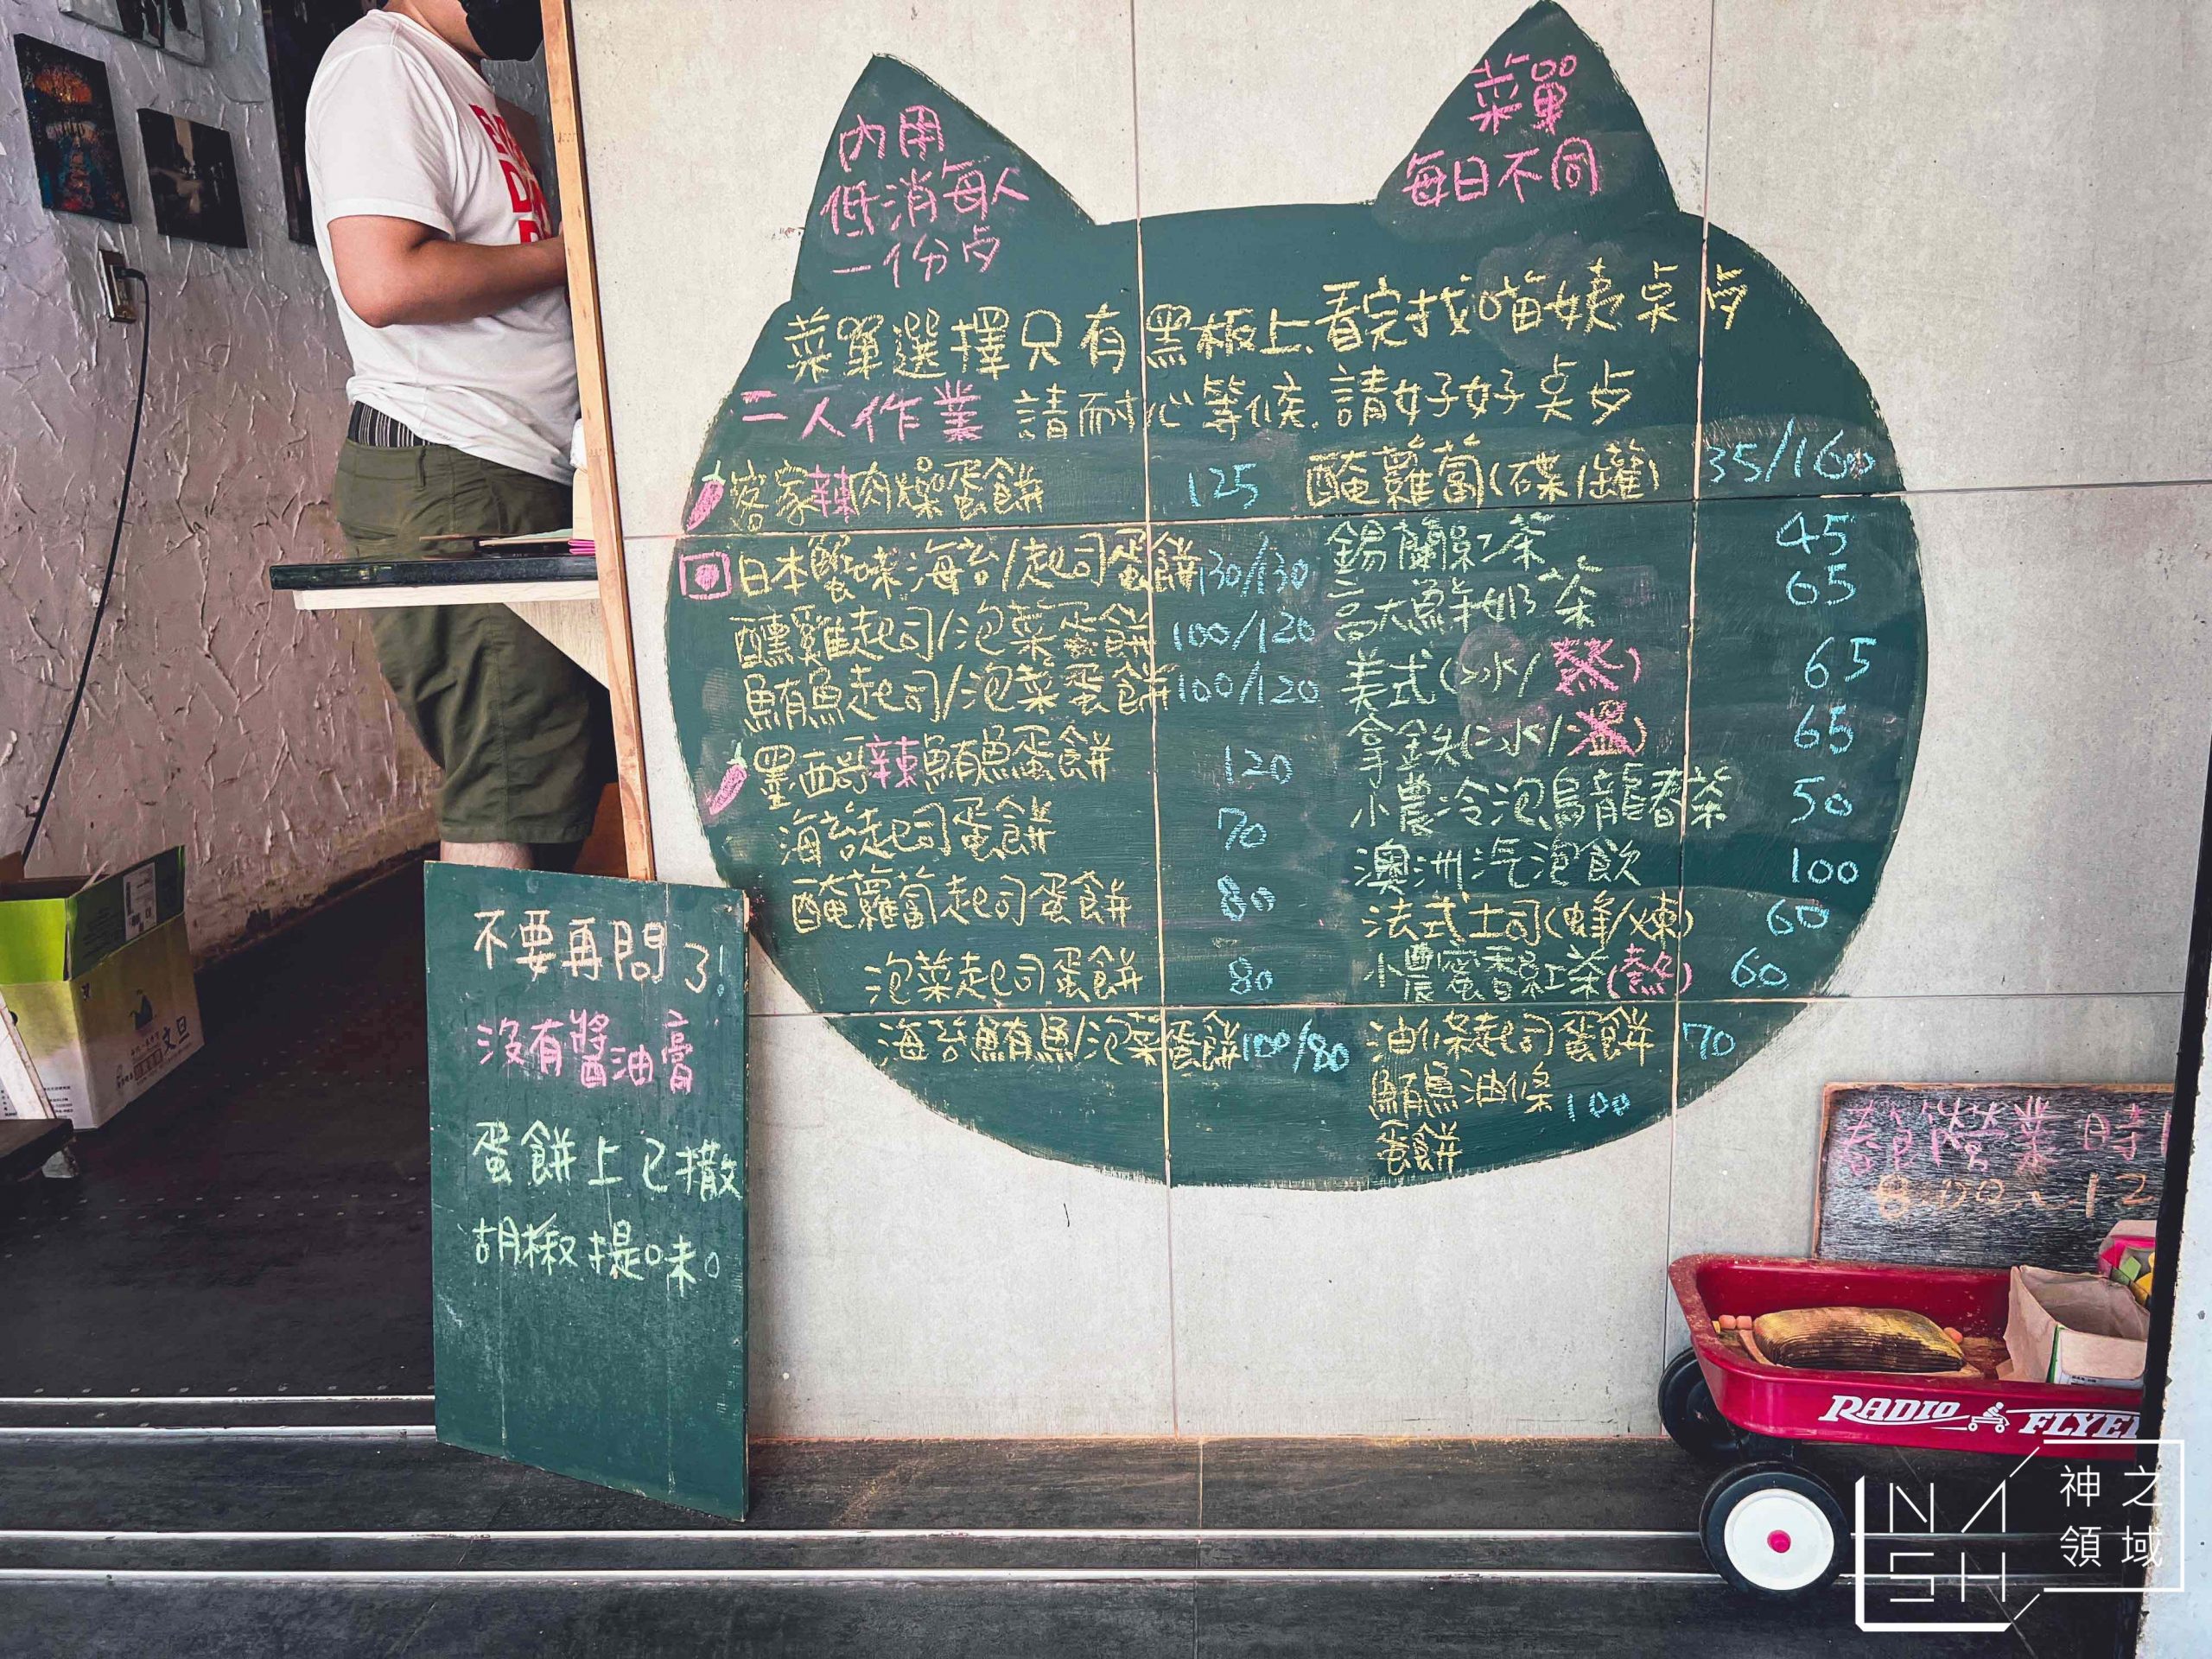 內用
低消每人
一份点
菜單
每日不同
菜單選擇只有黑板上.看完找喵姨桌点
二人作業 請耐心等候.請好好桌点
客家辣肉燥蛋餅 125
日本蟹味海苔/起司蛋餅 130/130
醺雞起司/泡菜蛋餅 100/120
鮪魚起司/泡菜蛋餅 100/120
墨西哥辣鮪魚蛋餅 120
海苔起司蛋餅 70
醃蘿蔔起司蛋餅 80
泡菜起司蛋餅 80
海苔鮪魚/泡菜蛋餅 100/80
醃蘿蔔(碟/罐) 35/160
錫蘭紅茶 45
高大鮮奶茶 65
美式(冰/熱) 65
拿鉄(冰/溫) 65
小農冷泡烏龍春茶 50
澳洲汽泡飲 100
法式土司(蜂/煉) 60
小農蜜香紅茶(熱) 60
油條起司蛋餅 70
鮪魚油條 100
蛋餅
不要再問了!
沒有醬油膏
蛋餅上已撒
胡椒提味。
營業時
8:00~12
文旦
RADIO FLYER
NASH
神之
領域